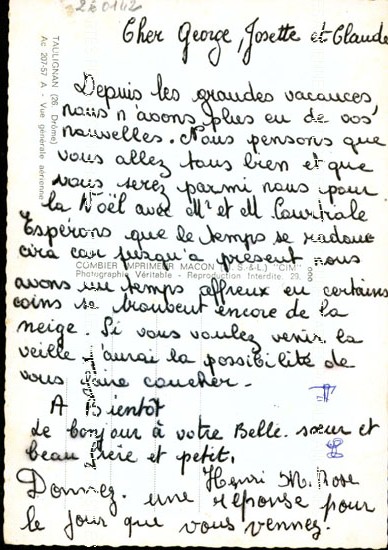 Cher George, Josette et Claude
Depuis les grandes vacances
nous n'avons plus eu de vos
nouvelles. Nous pensons que
vous allez tous bien et que
vous serez parmi nous pour
la Noël avec Mr et M
Espérons que le temps se radou
cira car jusqu'à présent nous
avons un temps affreux en certains
coins se trouvent encore de la
neige. Si vous voulez venir la
veille j'aurai la possibilité de
vous faire coucher.
A Bientôt
Le bonjour à votre Belle-sœur et
beau frère et petit.
Henri M. Rose
Donnez une réponse pour
le jour que vous vennez.
TAULIGNAN (26. Drôme)
Ac 207-57 A - Vue générale aérienne
COMBIER IMPRIMEUR MACON (S.-&-L.) "CIM"
Photographie Véritable - Reproduction Interdite.